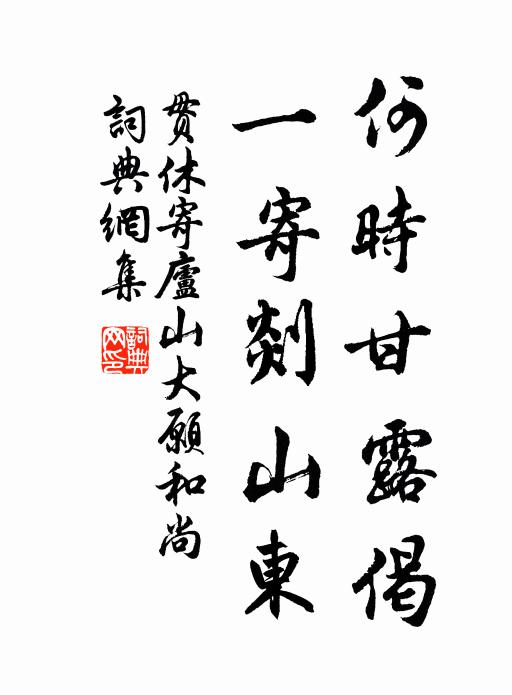 何時甘露偈
一寄剡山東
貫休寄廬山大願和尚
詞典網集
詞典网印